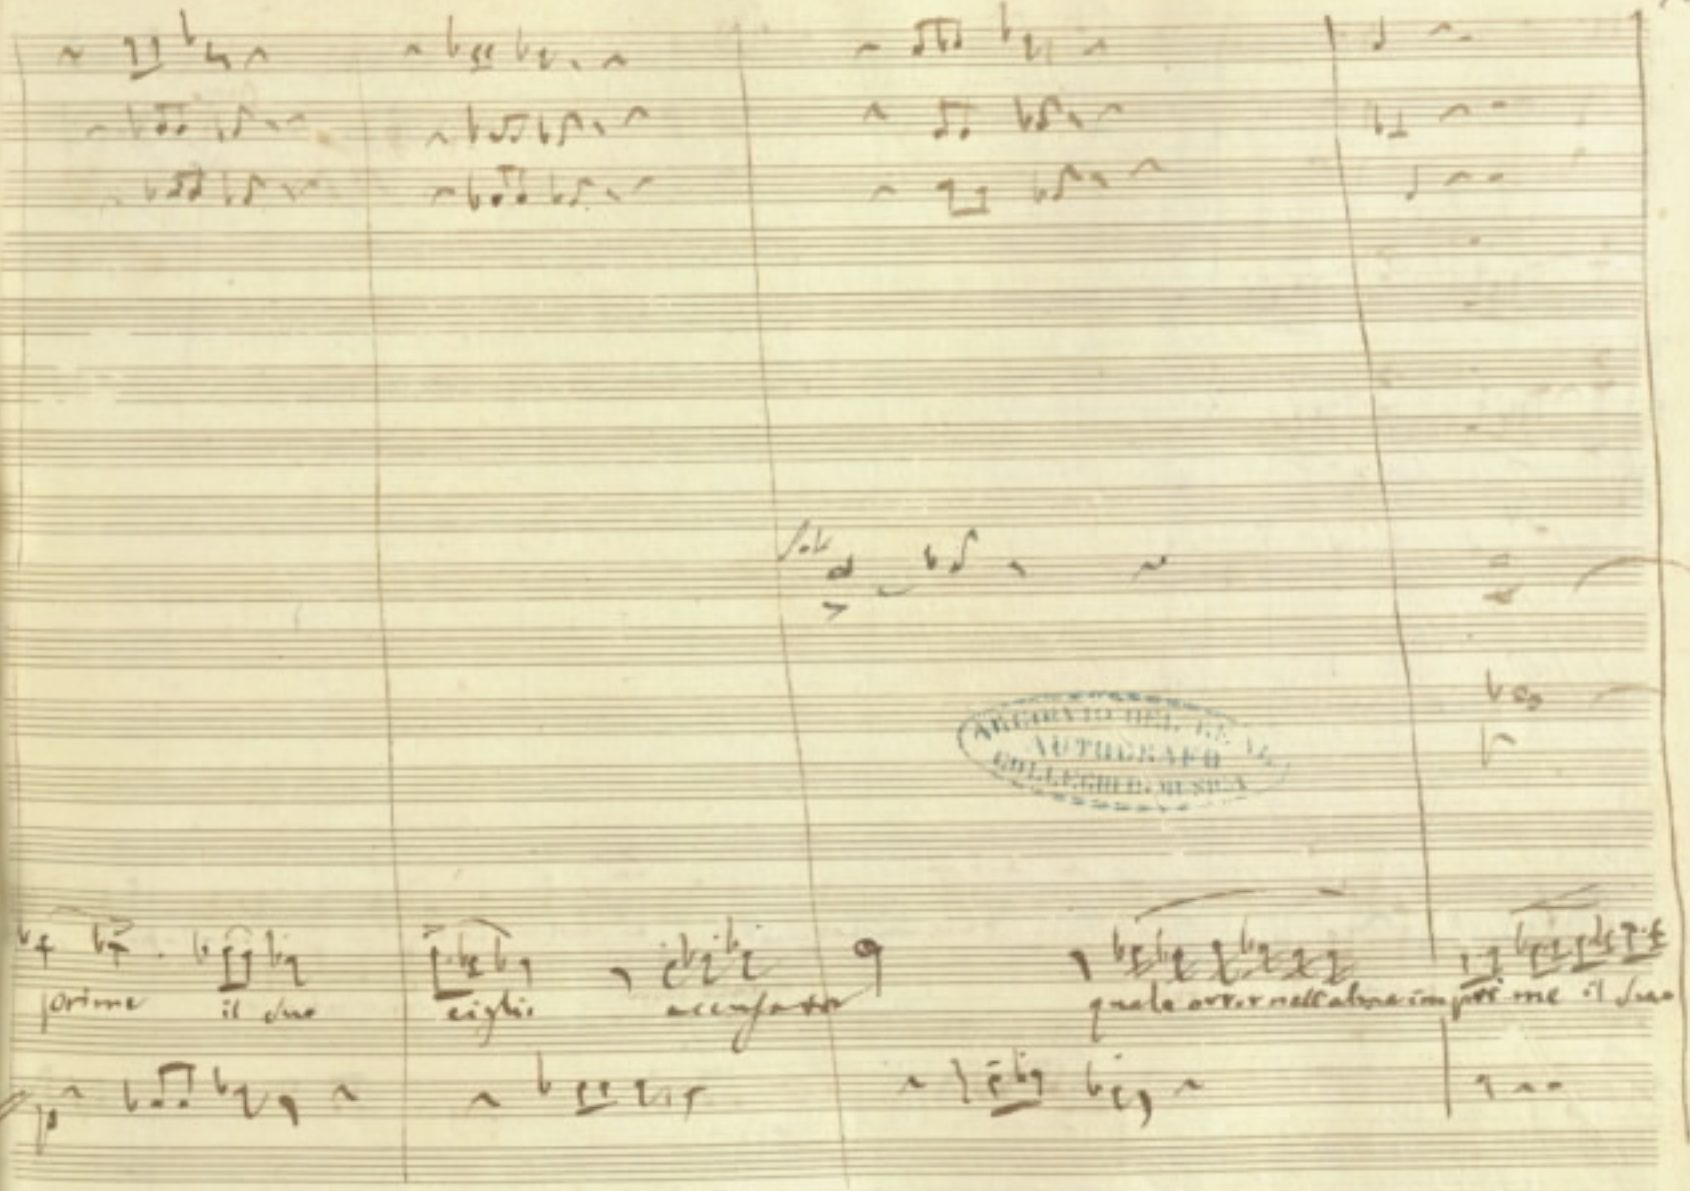 Solo
ARCHIVIO DEL REAL
AUTOGRAFO
COLLEGIO D. MUSICA
prime il suo ciglio quale orror nell'alma imprime il suo
p